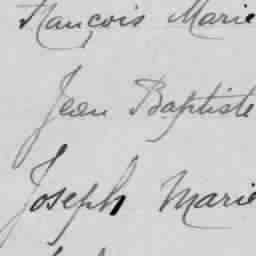 François Marie
Jean Baptiste
Joseph Marie